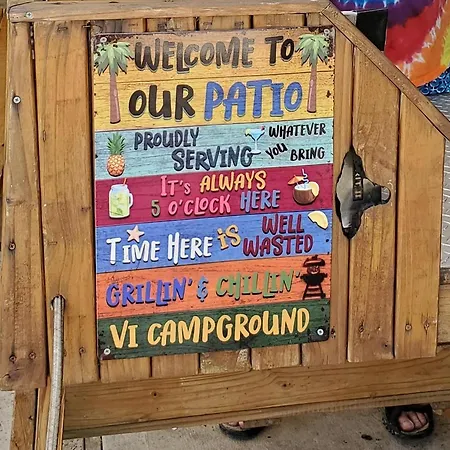 WELCOME TO
OUR PATIO
PROUDLY SERVING
WHATEVER YOU BRING
IT'S ALWAYS
5 O'CLOCK HERE
TIME HERE IS WELL WASTED
GRILLIN' & CHILLIN'
VI CAMPGROUND